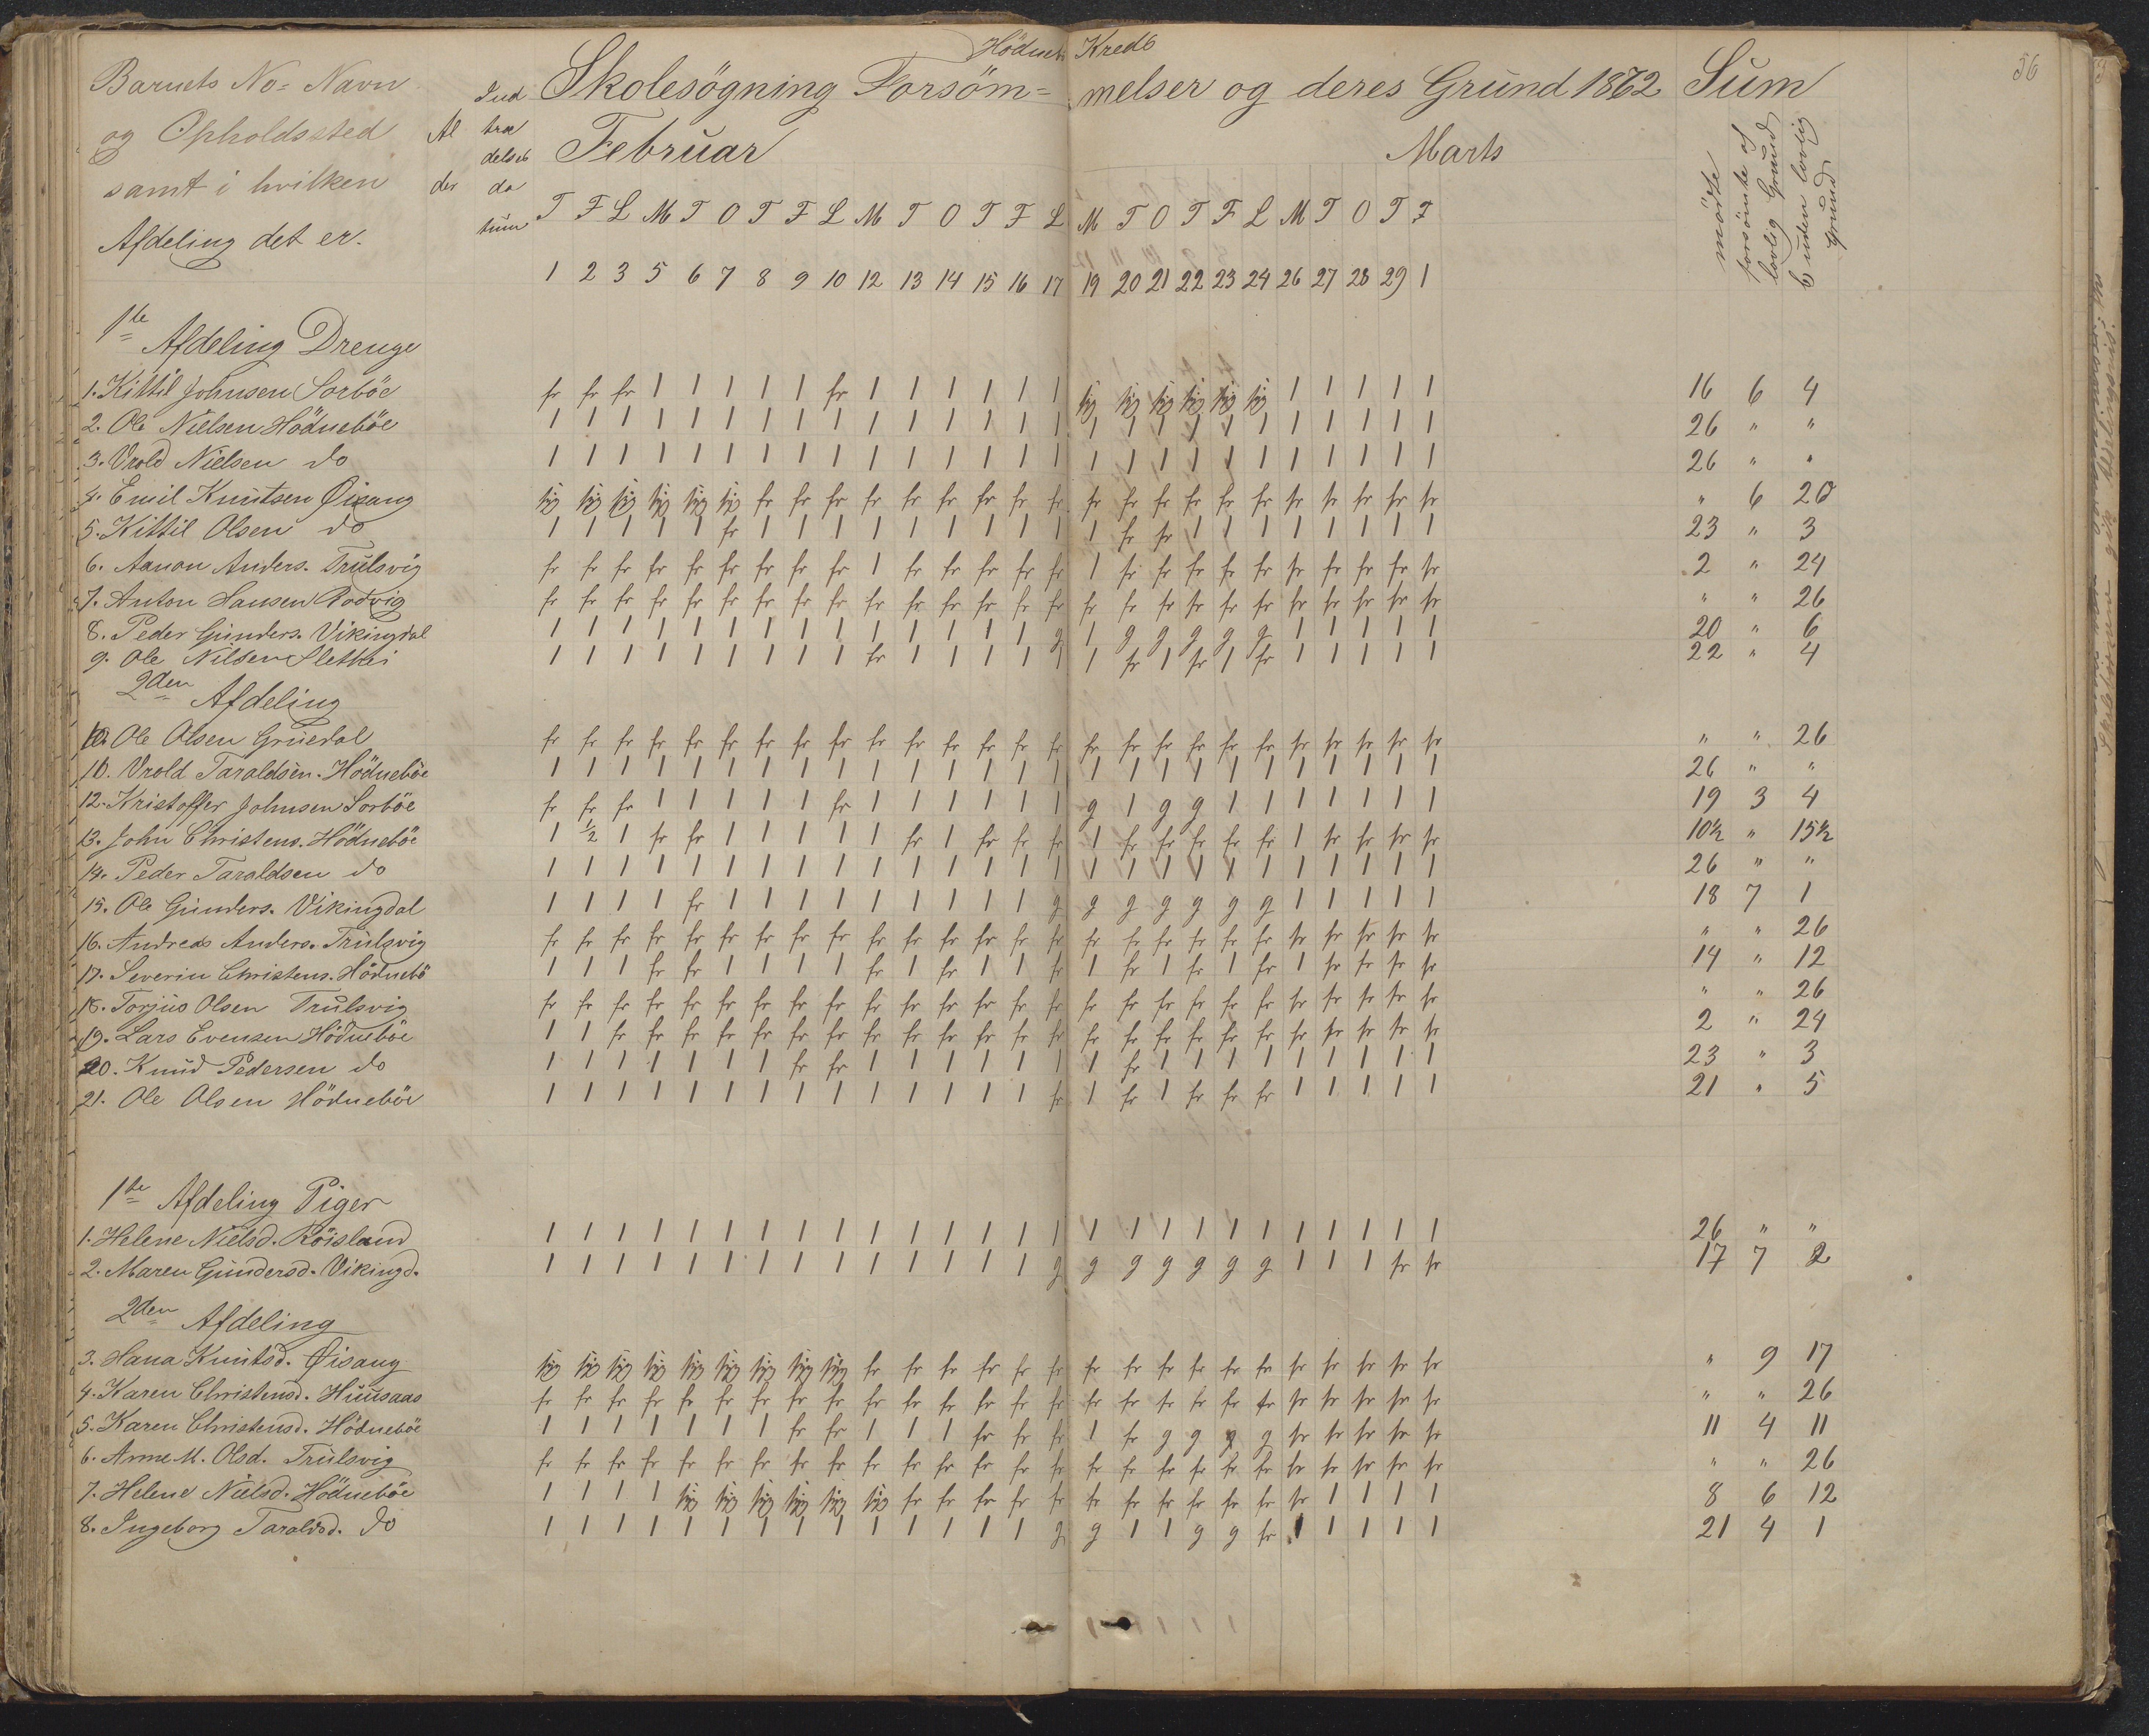 Hödneb Kreds
56
Barnets No= Navn og Opholdssted samt i hvilken Afdeling det er.
Al der
Ind træ delses da tum
Skolesögning Forsöm= melser og deres Grund 1872
Sum
Februar Marts
mödte
forsömte af lovlig Grund
b uden lovlig Grund
T F L M T O T F L M T O T F L M T O T F L M T O T F
1 2 3 5 6 7 8 9 10 12 13 14 15 16 17 19 20 21 22 23 24 26 27 28 29 1
1te Afdeling Drenge
1. Kittil Johnsen Sorböe fr fr fr 1 1 1 1 1 fr 1 1 1 1 1 1 syg syg syg syg syg syg 1 1 1 1 1 16 6 4
2. Ole Nielsen Hödneböe 1 1 1 1 1 1 1 1 1 1 1 1 1 1 1 1 1 1 1 1 1 1 1 1 1 1 26 " "
3. Vrold Nielsen do 1 1 1 1 1 1 1 1 1 1 1 1 1 1 1 1 1 1 1 1 1 1 1 1 1 1 26 " "
4. Emil Knutsen Øisang syg syg syg syg syg syg fr fr fr fr fr fr fr fr fr fr fr fr fr fr fr fr fr fr fr fr " 6 20
5. Kittil Olsen do 1 1 1 1 1 fr 1 1 1 1 1 1 1 1 1 1 fr fr 1 1 1 1 1 1 1 1 23 " 3
6. Aanon Anders. Trulsvig fr fr fr fr fr fr fr fr fr 1 fr fr fr fr fr 1 fr fr fr fr fr fr fr fr fr fr 2 " 24
7. Anton Hansen Rodvig fr fr fr fr fr fr fr fr fr fr fr fr fr fr fr fr fr fr fr fr fr fr fr fr fr fr " " 26
8. Peder Gunders. Vikingdal 1 1 1 1 1 1 1 1 1 1 1 1 1 1 g 1 g g g g g 1 1 1 1 1 20 " 6
9. Ole Nilsen Slethei 1 1 1 1 1 1 1 1 1 fr 1 1 1 1 1 1 fr 1 fr 1 fr 1 1 1 1 1 22 " 4
2den Afdeling
10. Ole Olsen Gruedal fr fr fr fr fr fr fr fr fr fr fr fr fr fr fr fr fr fr fr fr fr fr fr fr fr fr " " 26
11. Vrold Taraldsen. Hödneböe 1 1 1 1 1 1 1 1 1 1 1 1 1 1 1 1 1 1 1 1 1 1 1 1 1 1 26 " "
12. Kristoffer Johnsen Sorböe fr fr fr 1 1 1 1 1 fr 1 1 1 1 1 1 g 1 g g 1 1 1 1 1 1 1 19 3 4
13. John Christens. Hödneböe 1 ½ 1 fr fr 1 1 1 1 1 fr 1 fr fr fr 1 fr fr fr fr fr 1 fr fr fr fr 10½ " 15½
14. Peder Taraldsen do 1 1 1 1 1 1 1 1 1 1 1 1 1 1 1 1 1 1 1 1 1 1 1 1 1 1 26 " "
15. Ole Gunders. Vikingdal 1 1 1 1 fr 1 1 1 1 1 1 1 1 1 g g g g g g g 1 1 1 1 1 18 7 1
16. Andreas Anders. Trulsvig fr fr fr fr fr fr fr fr fr fr fr fr fr fr fr fr fr fr fr fr fr fr fr fr fr fr " " 26
17. Severin Christens. Hödnebö 1 1 1 fr fr 1 1 1 1 fr 1 fr 1 1 fr 1 fr 1 fr 1 fr 1 fr fr fr fr 14 " 12
18. Torjus Olsen Trulsvig fr fr fr fr fr fr fr fr fr fr fr fr fr fr fr fr fr fr fr fr fr fr fr fr fr fr " " 26
19. Lars Evensen Hödneböe 1 1 fr fr fr fr fr fr fr fr fr fr fr fr fr fr fr fr fr fr fr fr fr fr fr fr 2 " 24
20. Knud Pedersen do 1 1 1 1 1 1 1 fr fr 1 1 1 1 1 1 1 fr 1 1 1 1 1 1 1 1 1 23 " 3
21. Ole Olsen Hödneböe 1 1 1 1 1 1 1 1 1 1 1 1 1 1 fr 1 fr 1 fr fr fr 1 1 1 1 1 21 " 5
1te Afdeling Piger
1. Helene Nielsd. Röisland 1 1 1 1 1 1 1 1 1 1 1 1 1 1 1 1 1 1 1 1 1 1 1 1 1 1 26 " "
2. Maren Gundersd. Vikingd. 1 1 1 1 1 1 1 1 1 1 1 1 1 1 g g g g g g g 1 1 1 fr fr 17 7 2
2den Afdeling
3. Hana Knutsd. Øisang syg syg syg syg syg syg syg syg syg fr fr fr fr fr fr fr fr fr fr fr fr fr fr fr fr fr " 9 17
4. Karen Christensd. Huusaas fr fr fr fr fr fr fr fr fr fr fr fr fr fr fr fr fr fr fr fr fr fr fr fr fr fr " " 26
5. Karen Christensd. Hödneböe 1 1 1 1 1 1 1 fr fr 1 1 1 fr fr fr 1 fr g g g g fr fr fr fr fr 11 4 11
6. Anne M. Olsd. Trulsvig fr fr fr fr fr fr fr fr fr fr fr fr fr fr fr fr fr fr fr fr fr fr fr fr fr fr " " 26
7. Helene Nielsd. Hödneböe 1 1 1 1 syg syg syg syg syg syg fr fr fr fr fr fr fr fr fr fr fr fr 1 1 1 1 8 6 12
8. Ingeborg Taraldsd. do 1 1 1 1 1 1 1 1 1 1 1 1 1 1 g g 1 1 g g fr 1 1 1 1 1 21 4 1